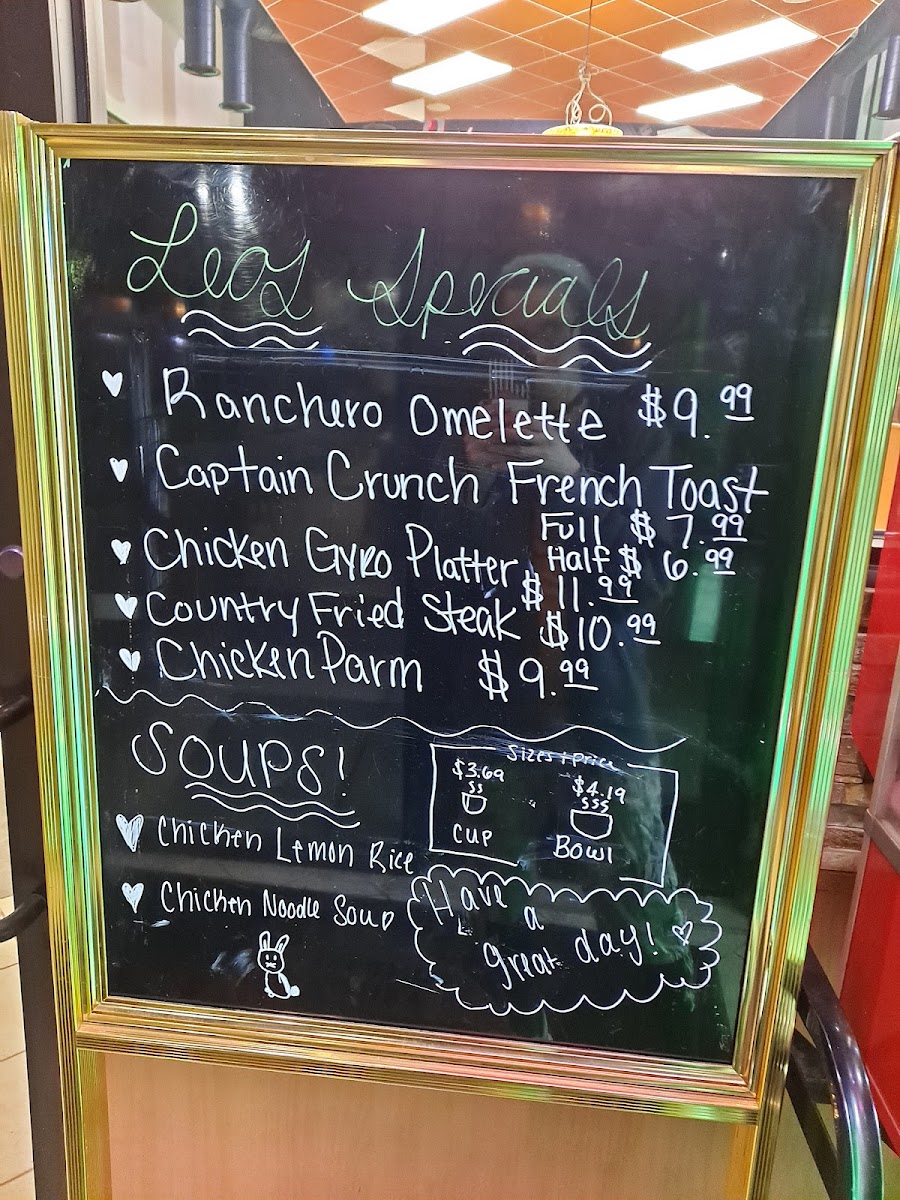 Leos Specials
Ranchero Omelette $9.99
Captain Crunch French Toast
Full $7.99
Half $6.99
Chicken Gyro Platter $11.99
Country Fried Steak $10.99
Chicken Parm $9.99
SOUPS!
Sizes & price
$3.69
$4.19
CUP
Bowl
Chicken Lemon Rice
Chicken Noodle Soup
Have
a
great day!